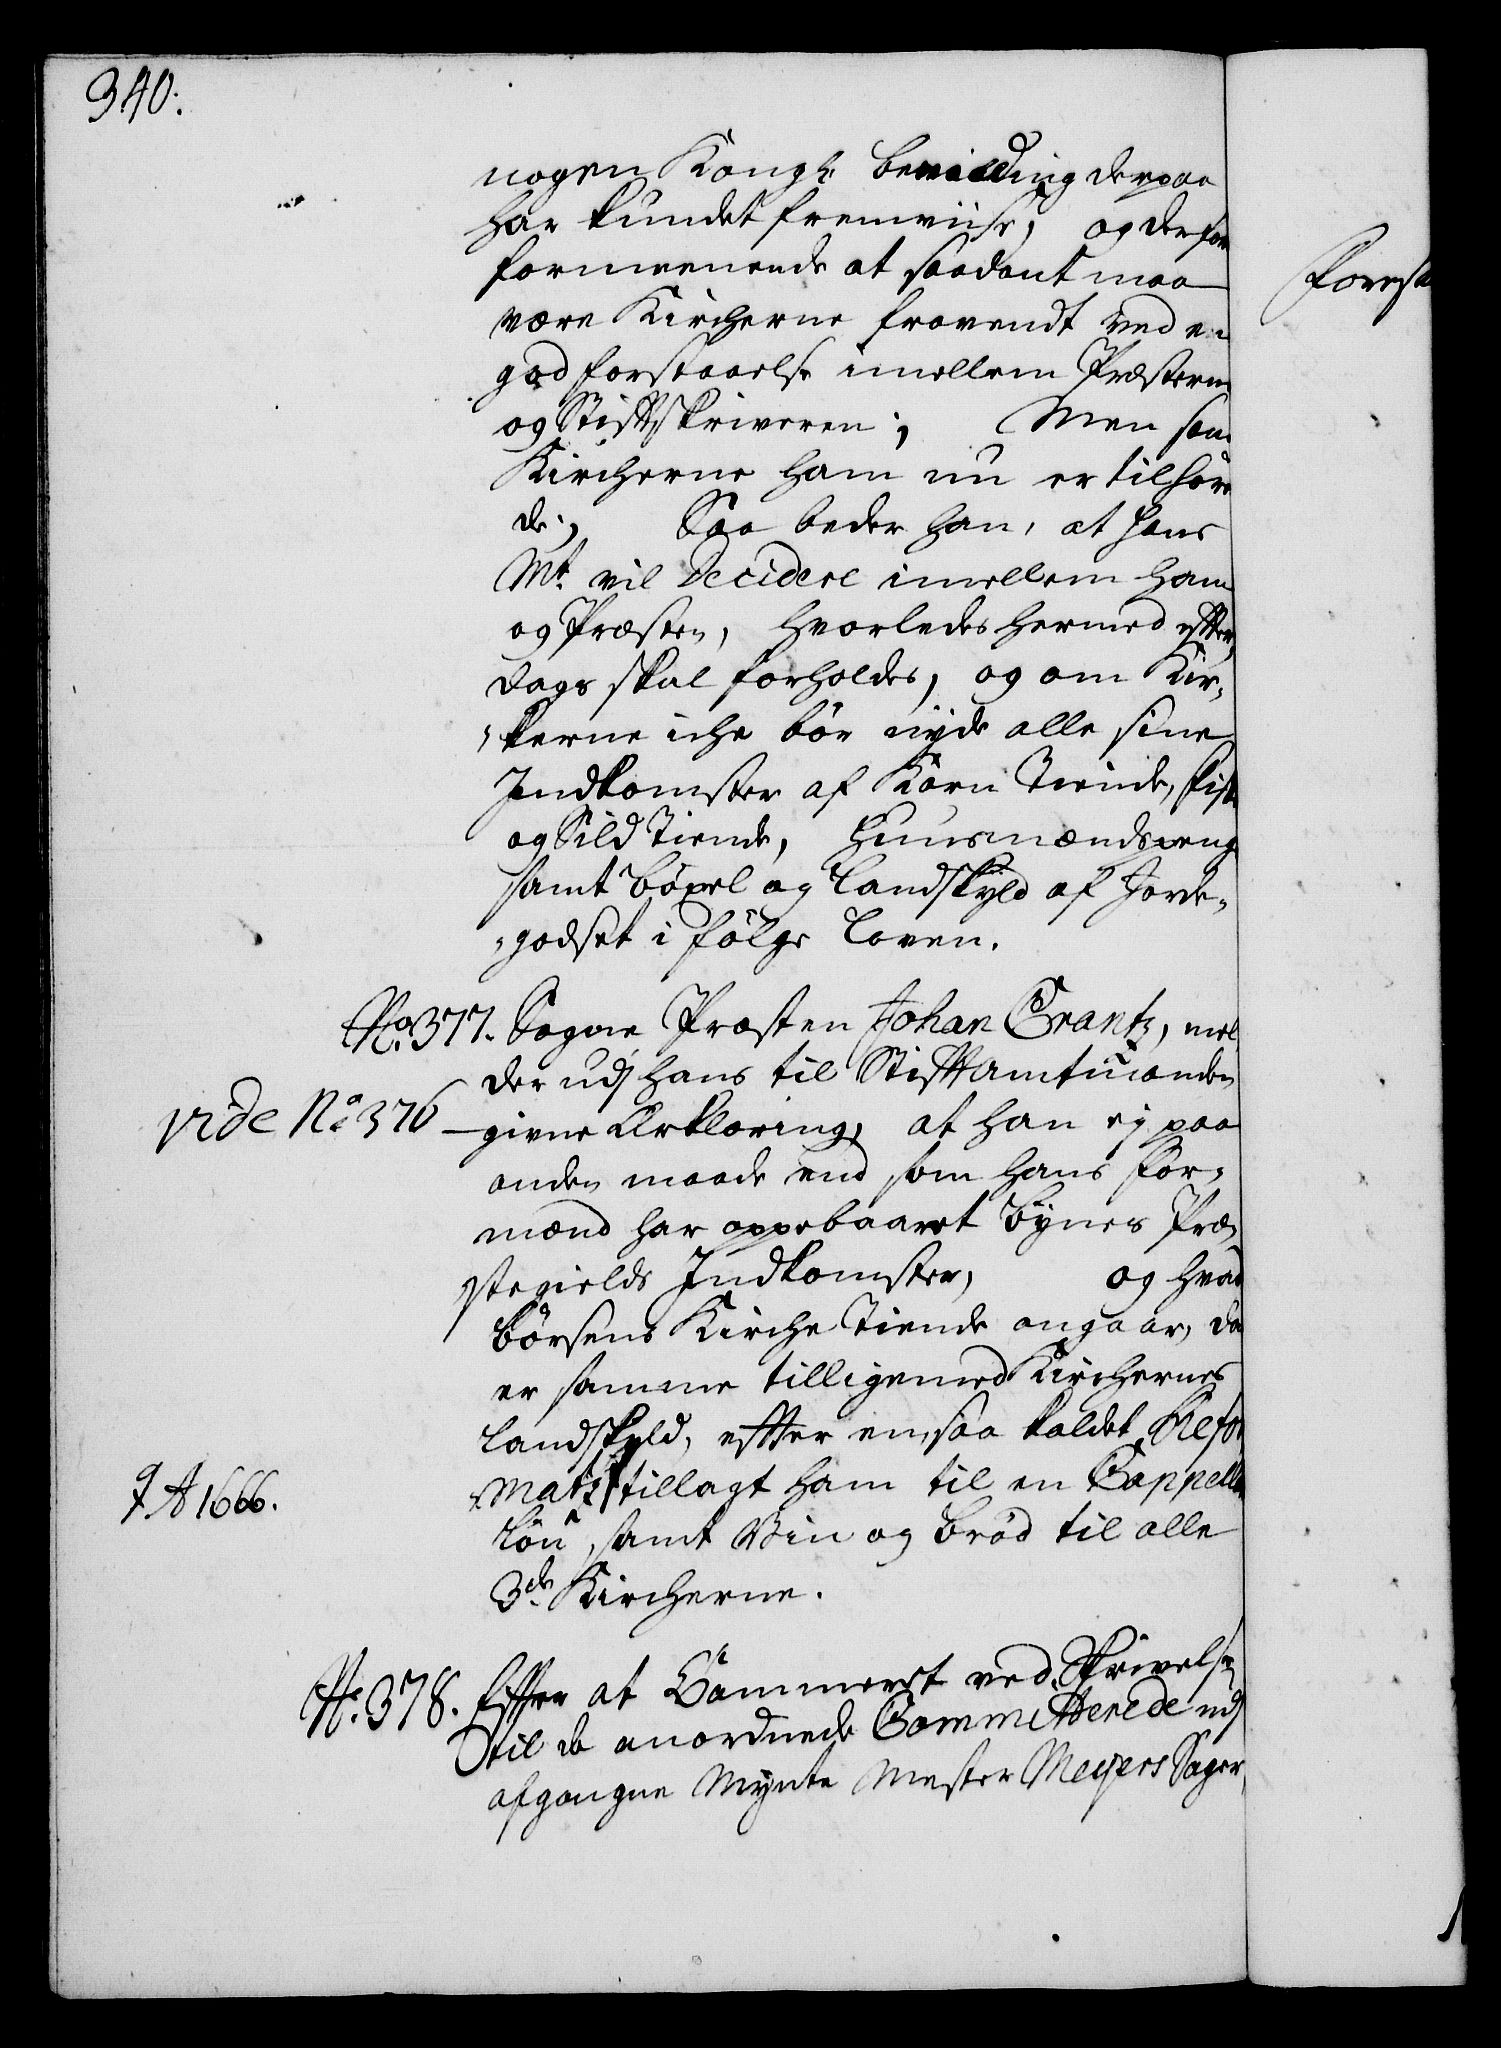 340.
nogen Kongl. bevilding derpaa
har kundet fremviise, og derfor
formeenende at saadant maa
være Kircherne fravendt ved en
god forstaaelse imellem Præsterne
og Stiftskriveren; Men som
Kircherne ham nu er tilhøren
de; Saa beder han, at Hans
Mt. vil Decidere imellem ham
og Præsten, hvorledes hermed efter
dags skal forholdes, og om Kir-
kerne iche bør nyde alle sine
Indkomster af Korn Tiende, Fisk
og Sild Tiende, Huusmændspenge
samt bøxel og Landskyld af Jorde-
godset i følge Loven.
No. 377. Sogne Præsten Johan Crantz, mel
der udj hans til Stiftamtmanden
vide No. 376 givne Erklæring, at han ej paa
anden maade end som hans for-
mænd har oppebaaret bynes Præ-
stegields Indkomster, og hvad
Børsens Kirche Tiende angaar, da
er samme tilligemed Kirchernes
Landskyld, efter en saa kaldet Refor
matz tillagt ham til en Cappellan
† A 1666.
Løn, samt Viin og brød til alle
3de. Kircherne.
No. 378. Efter at Cammeret ved Skrivelse
til de anordnede Committerede udj
afgangne Mynte Mester Meyers Sager,